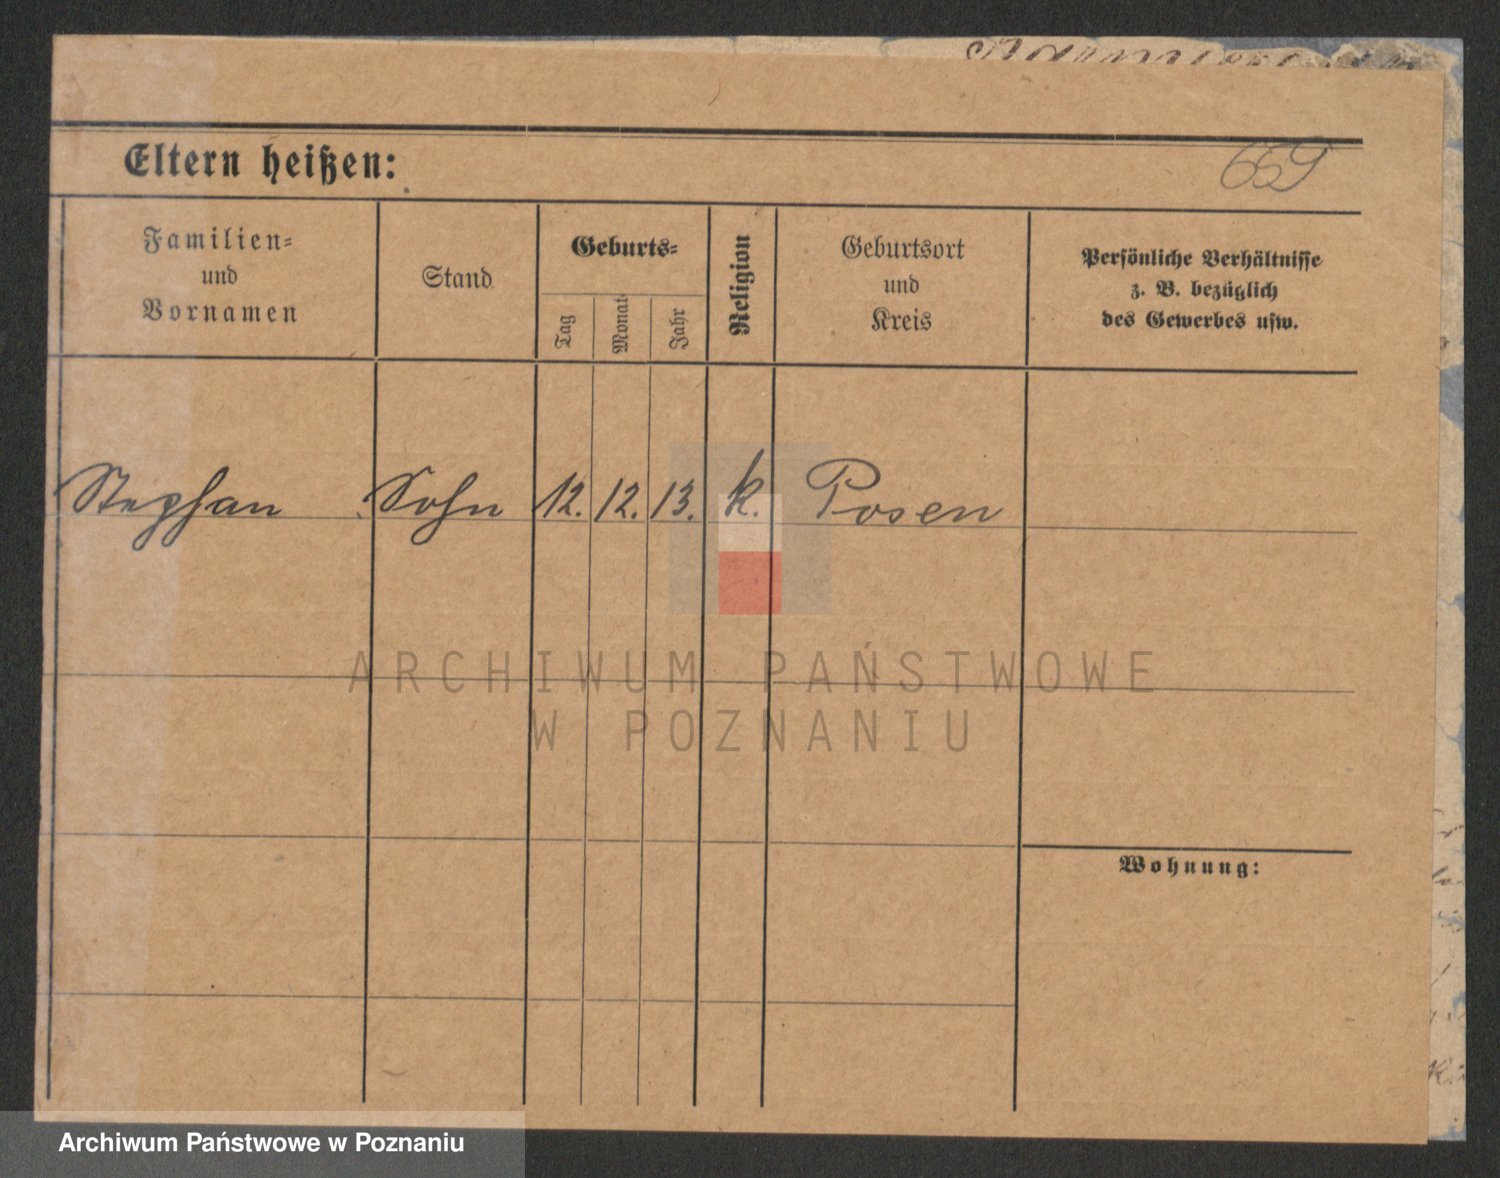 Eltern heißen:
659
Familien=
und
Vornamen
Stand
Geburts=
Tag
Monat
Jahr
Religion
Geburtsort
und
Kreis
Persönliche Verhältnisse
z. B. bezüglich
des Gewerbes usw.
Stephan Sohn 12. 12. 13. k. Posen
ARCHIWUM PAŃSTWOWE
W POZNANIU
Wohnung:
Archiwum Państwowe w Poznaniu